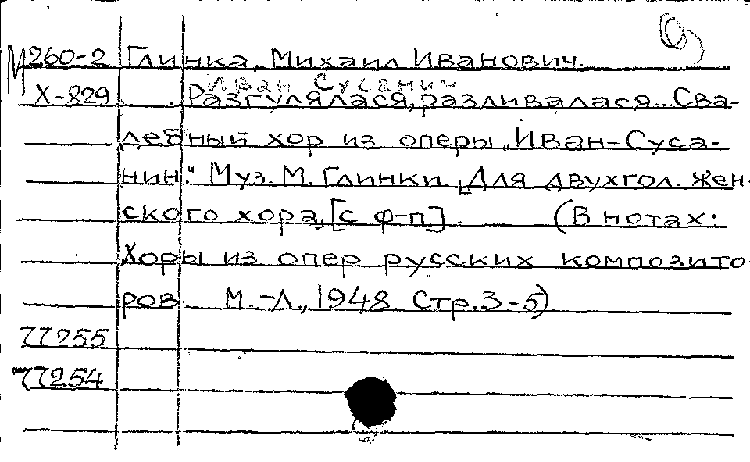 М260-2 Глинка, Михаил Иванович.
Иван Сусанин
Х-829 Разгулялася, разливалася.. Сва-
дебный хор из оперы „Иван-Суса-
нин." Муз. М. Глинки. [Для двухгол. жен-
ского хора, [с ф-п] (В нотах:
Хоры из опер русских композито-
ров М.-Л., 1948 Стр. 3-5)
77255
77254